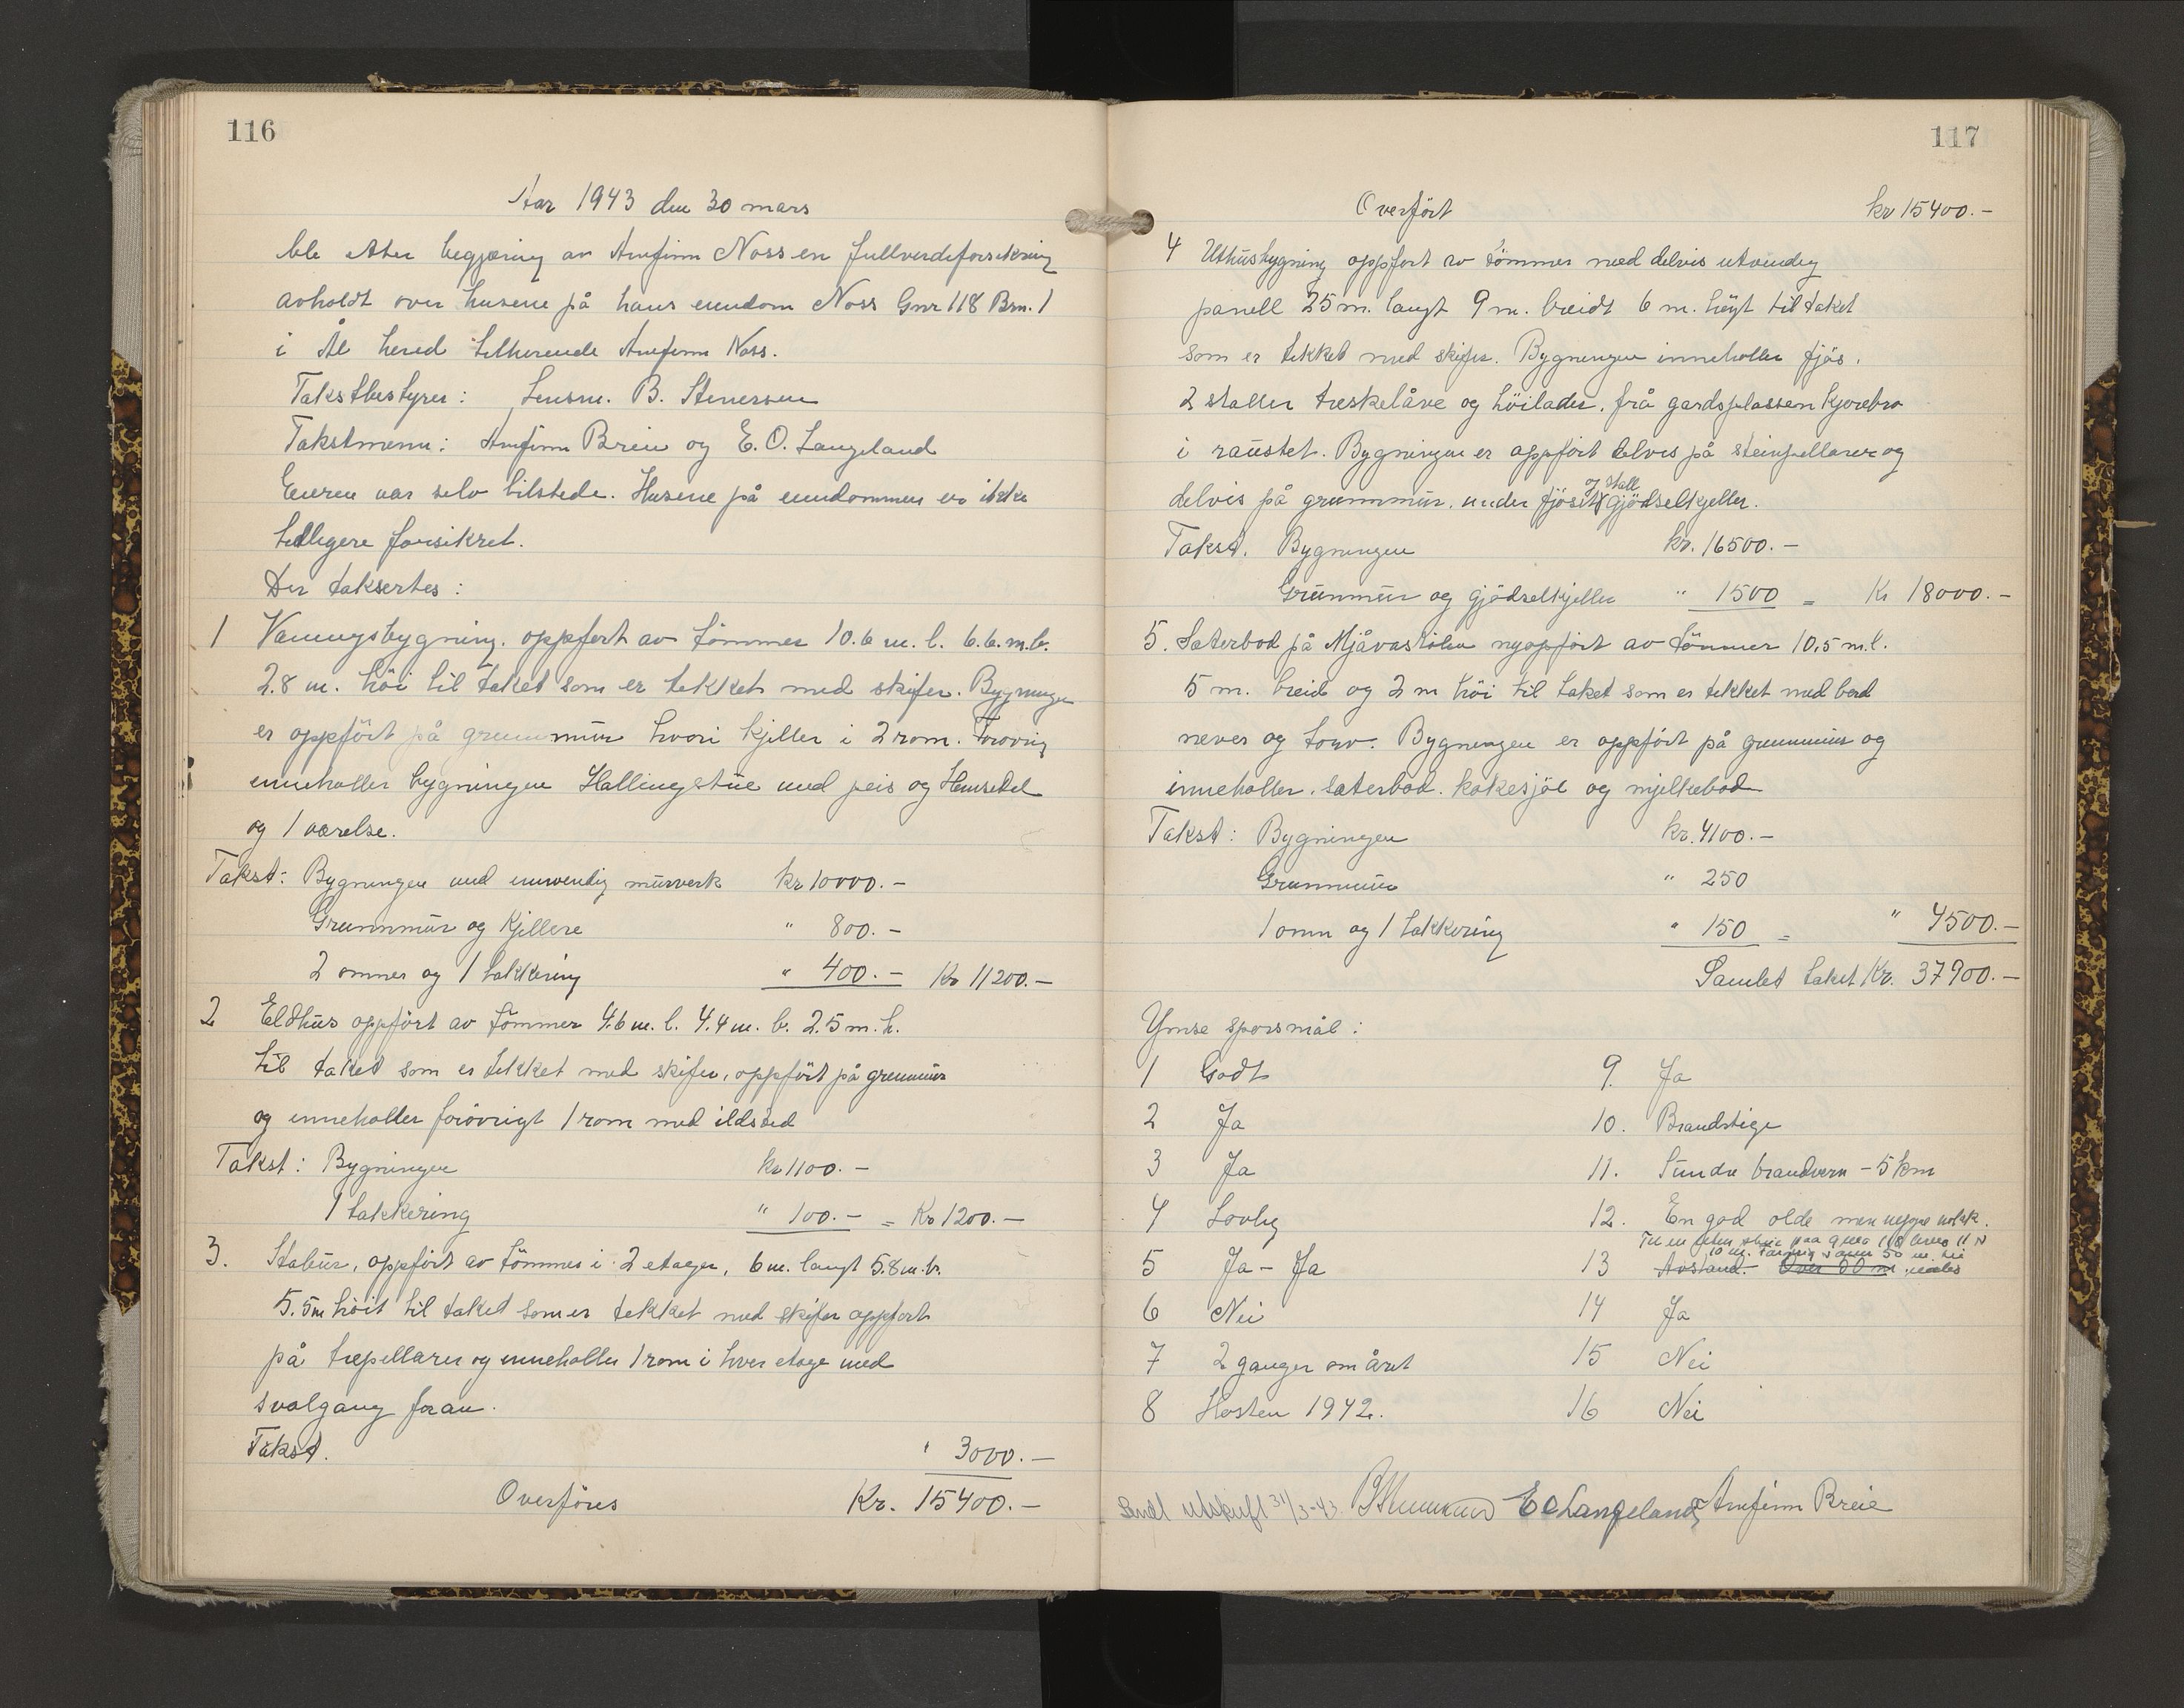 116
Aar 1943 den 30 mars
ble etter begjæring av Arnfinn Noss en fullverdiforsikring
avholdt over husene på hans eiendom Noss Gnr 118 Brn. 1
i Ål herred tilhørende Arnfinn Noss.
Takstbestyrer: Lensm. B. Stenersen
Takstmenn: Arnfinn Breie og E. O. Langeland
Eieren var selv tilstede. Husene på eiendommen er ikke
tidligere forsikret.
Der taksertes:
1 Vaaningsbygning. oppført av tömmer 10.6 m. l. 6.6. m. b.
2.8 m. höi til taket som er tekket med skifer. Bygningen
er oppfört på grunnmur hvori kjeller i 2 rom. Forøvrig
inneholler bygningen Hallingstue med peis og Hemsedel
og 1 værelse.
Takst: Bygningen med innvendig murverk kr 10000.-
Grunnmur og Kjellere " 800.-
2 omner og 1 takkering " 400.- Kr 11200.-
2 Eldhus oppfört av tömmer 4.6 m. l. 4.4 m. b. 2.5 m. h.
til taket som er tekket med skifer, oppfört på grunnmur
og inneholler forövrigt 1 rom med ildsted
Takst: Bygningen kr 1100.-
1 takkering " 100.- = Kr 1200.-
3. Stabur, oppfört av tömmer i 2 etager, 6 m. langt 5.8 m. br.
5.5 m höit til taket som er tekket med skifer oppført
på trepellarer og inneholler 1 rom i hver etage med
svalgang foran.
Takst. " 3000.-
Overföres Kr. 15400.-
117
Overfört kr 15400.-
4 Uthusbygning oppført av tömmer med delvis utvendig
panell 25 m. langt 9 m. breidt 6 m. høyt til taket
som er tekket med skifer. Bygningen inneholler fjös.
2 staller treskelåve og höilader. frå gardsplassen kjorebro
i raustet. Bygningen er oppfört delvis på steinpellarer og
delvis på grunnmur. under fjöset og stall gjödselkjeller.
Takst. Bygningen kr. 16500.-
Grunnmur og gjödselkjeller " 1500 = Kr 18000.-
5. Sæterbod på Mjåvastölen nyoppfört av tömmer 10,5 m. l.
5 m. breid og 2 m höi til taket som er tekket med bord
never og torv. Bygningen er oppfört på grunnmur og
inneholler. sæterbod. kokesjöl og mjelkebod
Takst: Bygningen kr. 4100.-
Grunnmur " 250
1 omn og 1 takkering " 150 = " 4500.-
Samlet takst Kr. 37900.-
Ymse sporsmål:
1 Godt 9. Ja
2 Ja 10. Brandstige
3 Ja 11. Sundre brandvern - 5 km
4 Lovlig 12. En god olde men neppe nokk.
5 Ja - Ja 13 Avstand. Over 50 m
6 Nei 14 Ja
7 2 ganger om året 15 Nei
8 Høsten 1942. 16 Nei
Sendt utskrift 31/3-43 BStenersen E O Langeland Arnfinn Breie